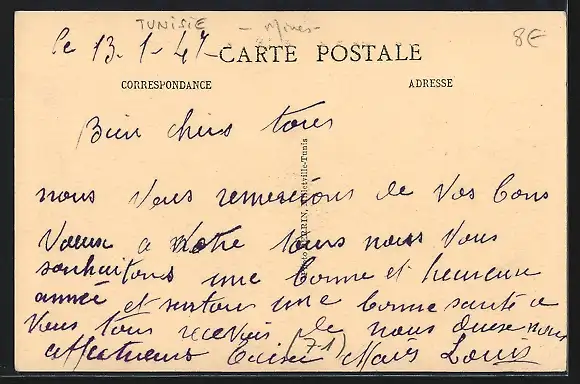 TUNISIE - Mines - 8€
le 13-1-47- CARTE POSTALE
CORRESPONDANCE ADRESSE
Bien chers tous
nous vous remercions de vos bons
Vœux a notre tours nous vous
souhaitons une bonne et heureuse
année et surtout une bonne santé a
Vous tous recevais de nous deux nos
affectueux Louis
(71)